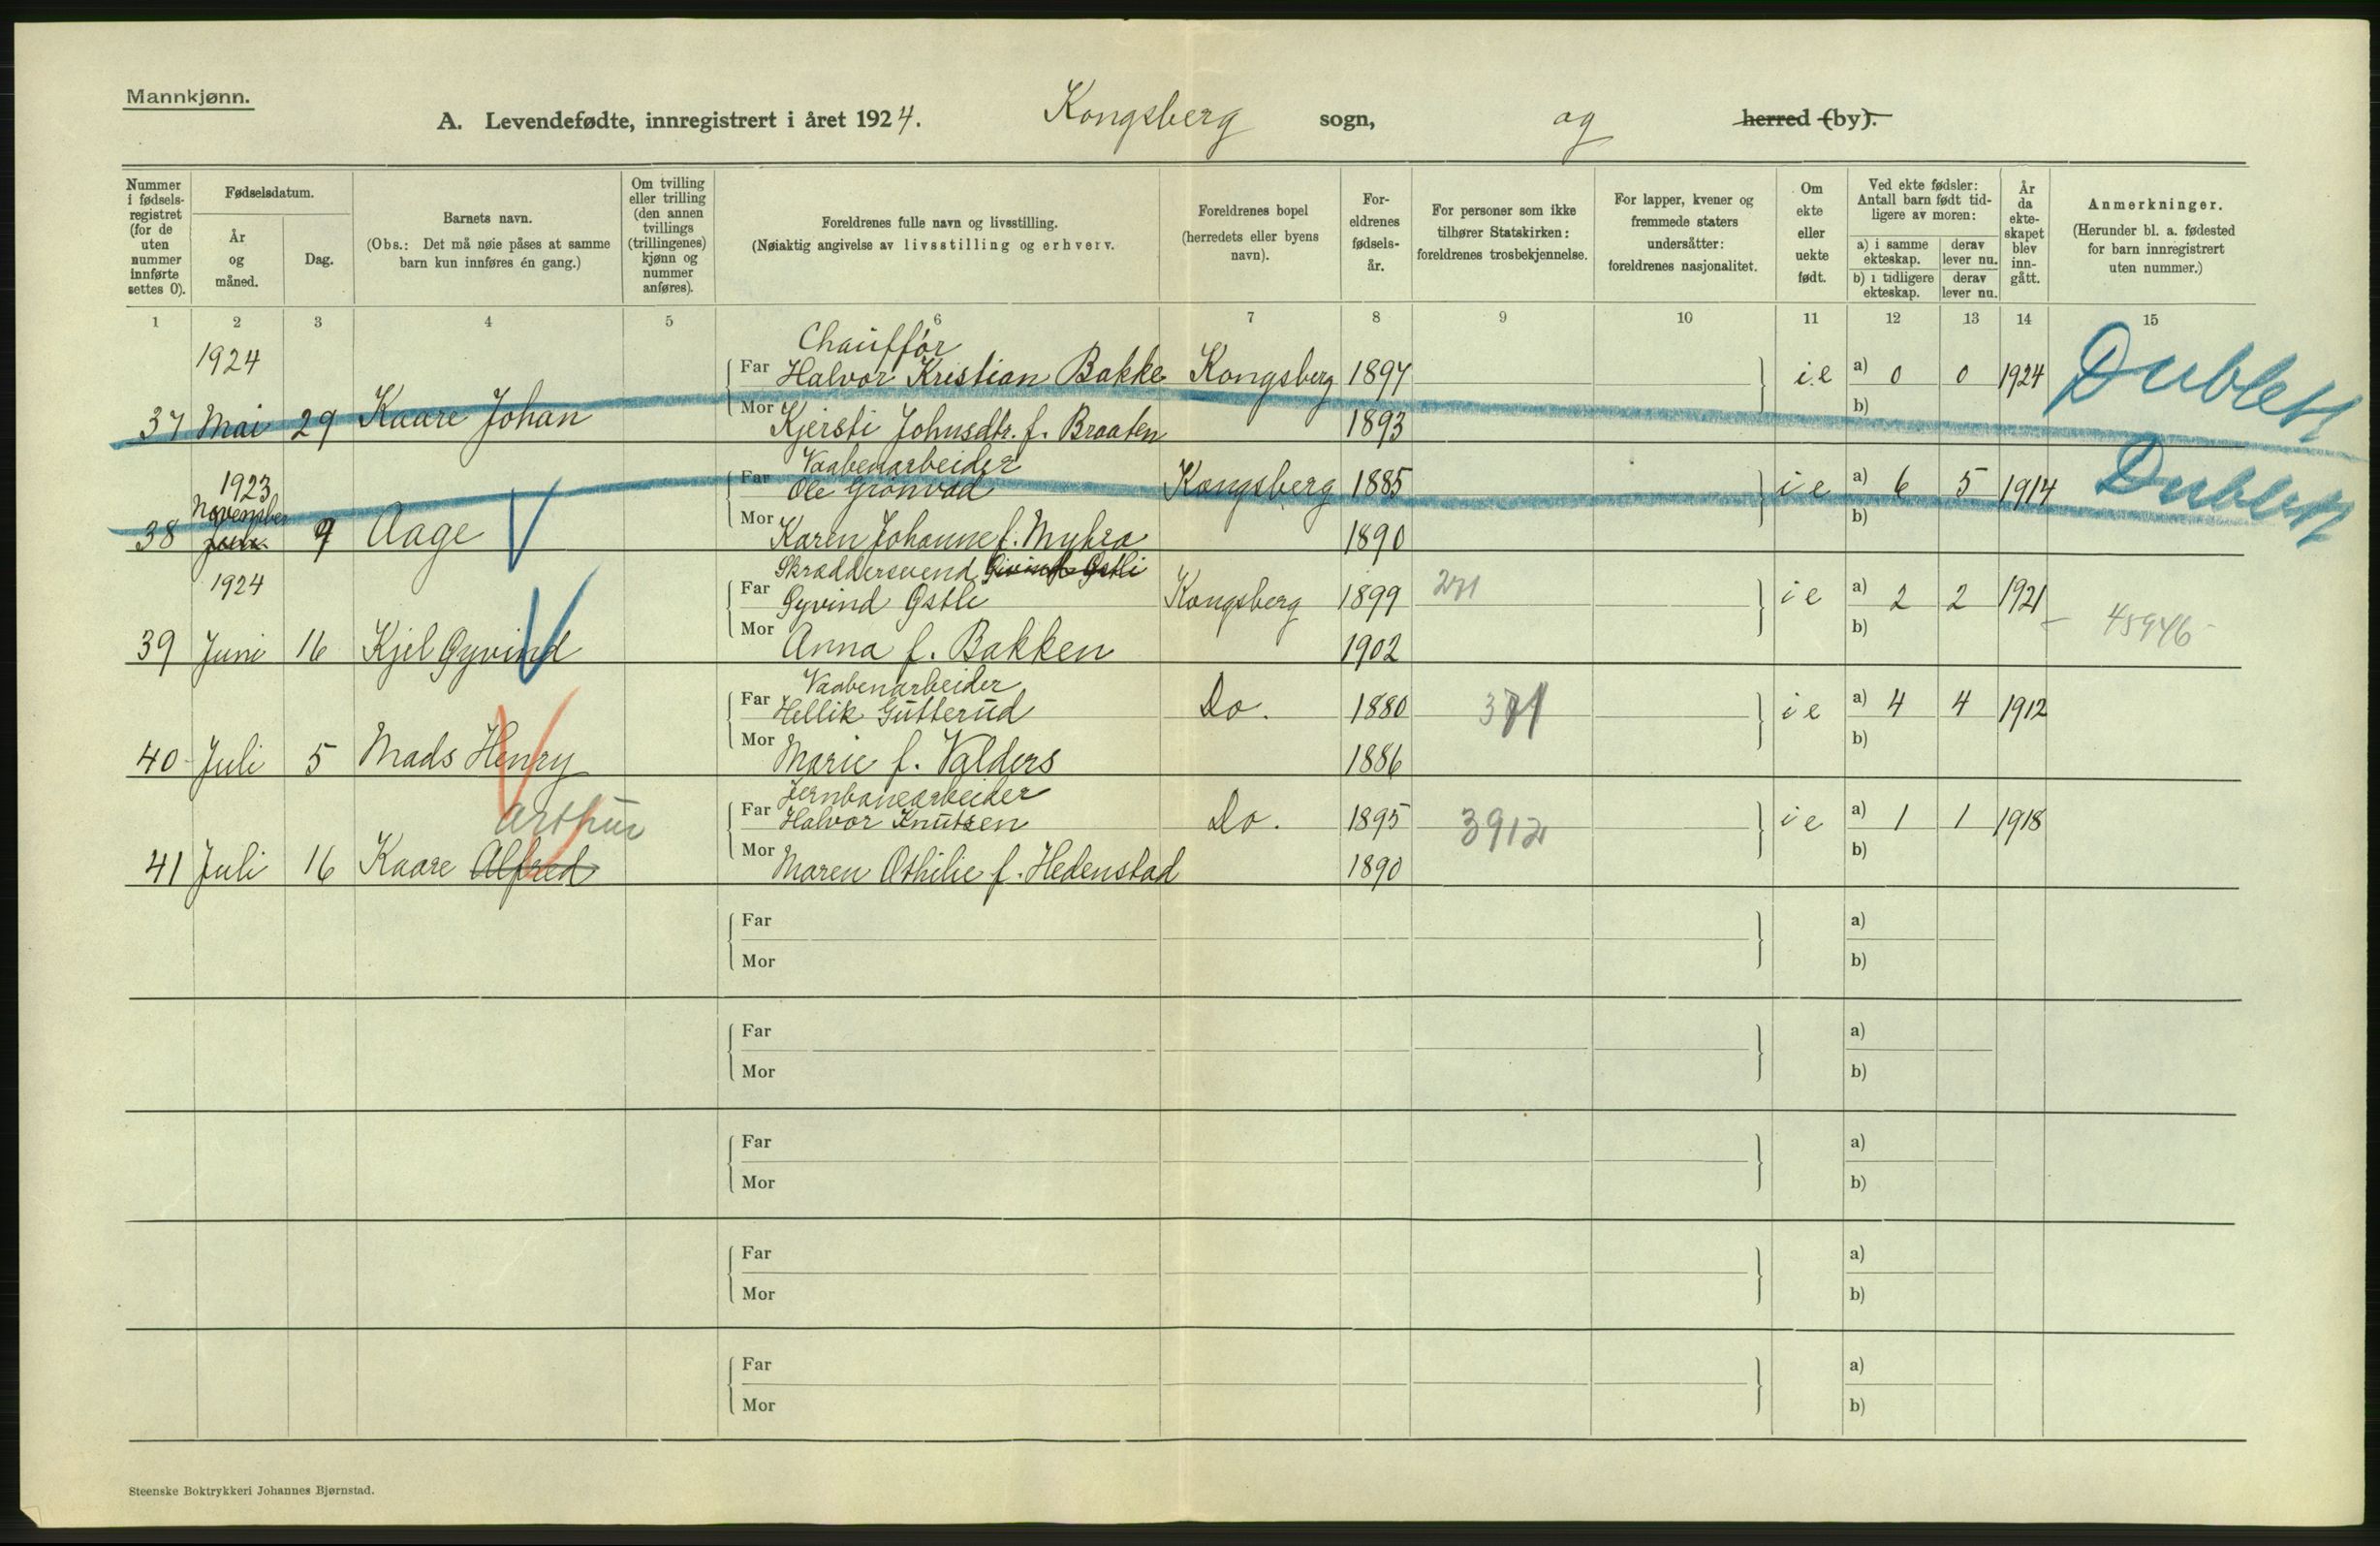 Mannkjønn.
A. Levendefødte, innregistrert i året 1924. Kongsberg sogn, og herred (by).
Nummer i fødsels-registret (for de uten nummer innførte settes 0).
Fødselsdatum.
År og måned.
Dag.
Barnets navn.
(Obs.: Det må nøie påses at samme barn kun innføres én gang.)
Om tvilling eller trilling (den annen tvillings (trillingenes) kjønn og nummer anføres).
Foreldrenes fulle navn og livsstilling.
(Nøiaktig angivelse av livsstilling og erhverv.
Foreldrenes bopel (herredets eller byens navn).
For-eldrenes fødsels-år.
For personer som ikke tilhører Statskirken: foreldrenes trosbekjennelse.
For lapper, kvener og fremmede staters undersåtter: foreldrenes nasjonalitet.
Om ekte eller uekte født.
Ved ekte fødsler: Antall barn født tid-ligere av moren:
a) i samme ekteskap.
derav lever nu.
b) i tidligere ekteskap.
derav lever nu.
År da ekte-skapet blev inn-gått.
Anmerkninger.
(Herunder bl. a. fødested for barn innregistrert uten nummer.)
1 2 3 4 5 6 7 8 9 10 11 12 13 14 15
Chauffør
1924 Far Halvor Kristian Bakke Kongsberg 1897 i.e a) 0 0 1924 Dublett
37 Mai 29 Kaare Johan Mor Kjersti Johnsdtr. f. Braaten 1893 b)
Vaabenarbeider
1923 Far Ole Grønvad Kongsberg 1885 i e a) 6 5 1914 Dublett
November
38 9 Aage Mor Karen Johanne f. Myhra 1890 b)
Skræddersvend Øivind Østli
1924 Far Øyvind Østli Kongsberg 1899 271 i e a) 2 2 1921 45946
39 Juni 16 Kjel Øyvind Mor Anna f. Bakken 1902 b)
Vaabenarbeider
Far Hellik Gutterud Do. 1880 371 i e a) 4 4 1912
40 Juli 5 Mads Henry Mor Marie f. Valders 1886 b)
Jernbanearbeider
Arthur Far Halvor Knutsen Do. 1895 3912 i e a) 1 1 1918
41 Juli 16 Kaare Alfred Mor Maren Othilie f. Hedenstad 1890 b)
Far a)
Mor b)
Far a)
Mor b)
Far a)
Mor b)
Far a)
Mor b)
Far a)
Mor b)
Steenske Boktrykkeri Johannes Bjørnstad.